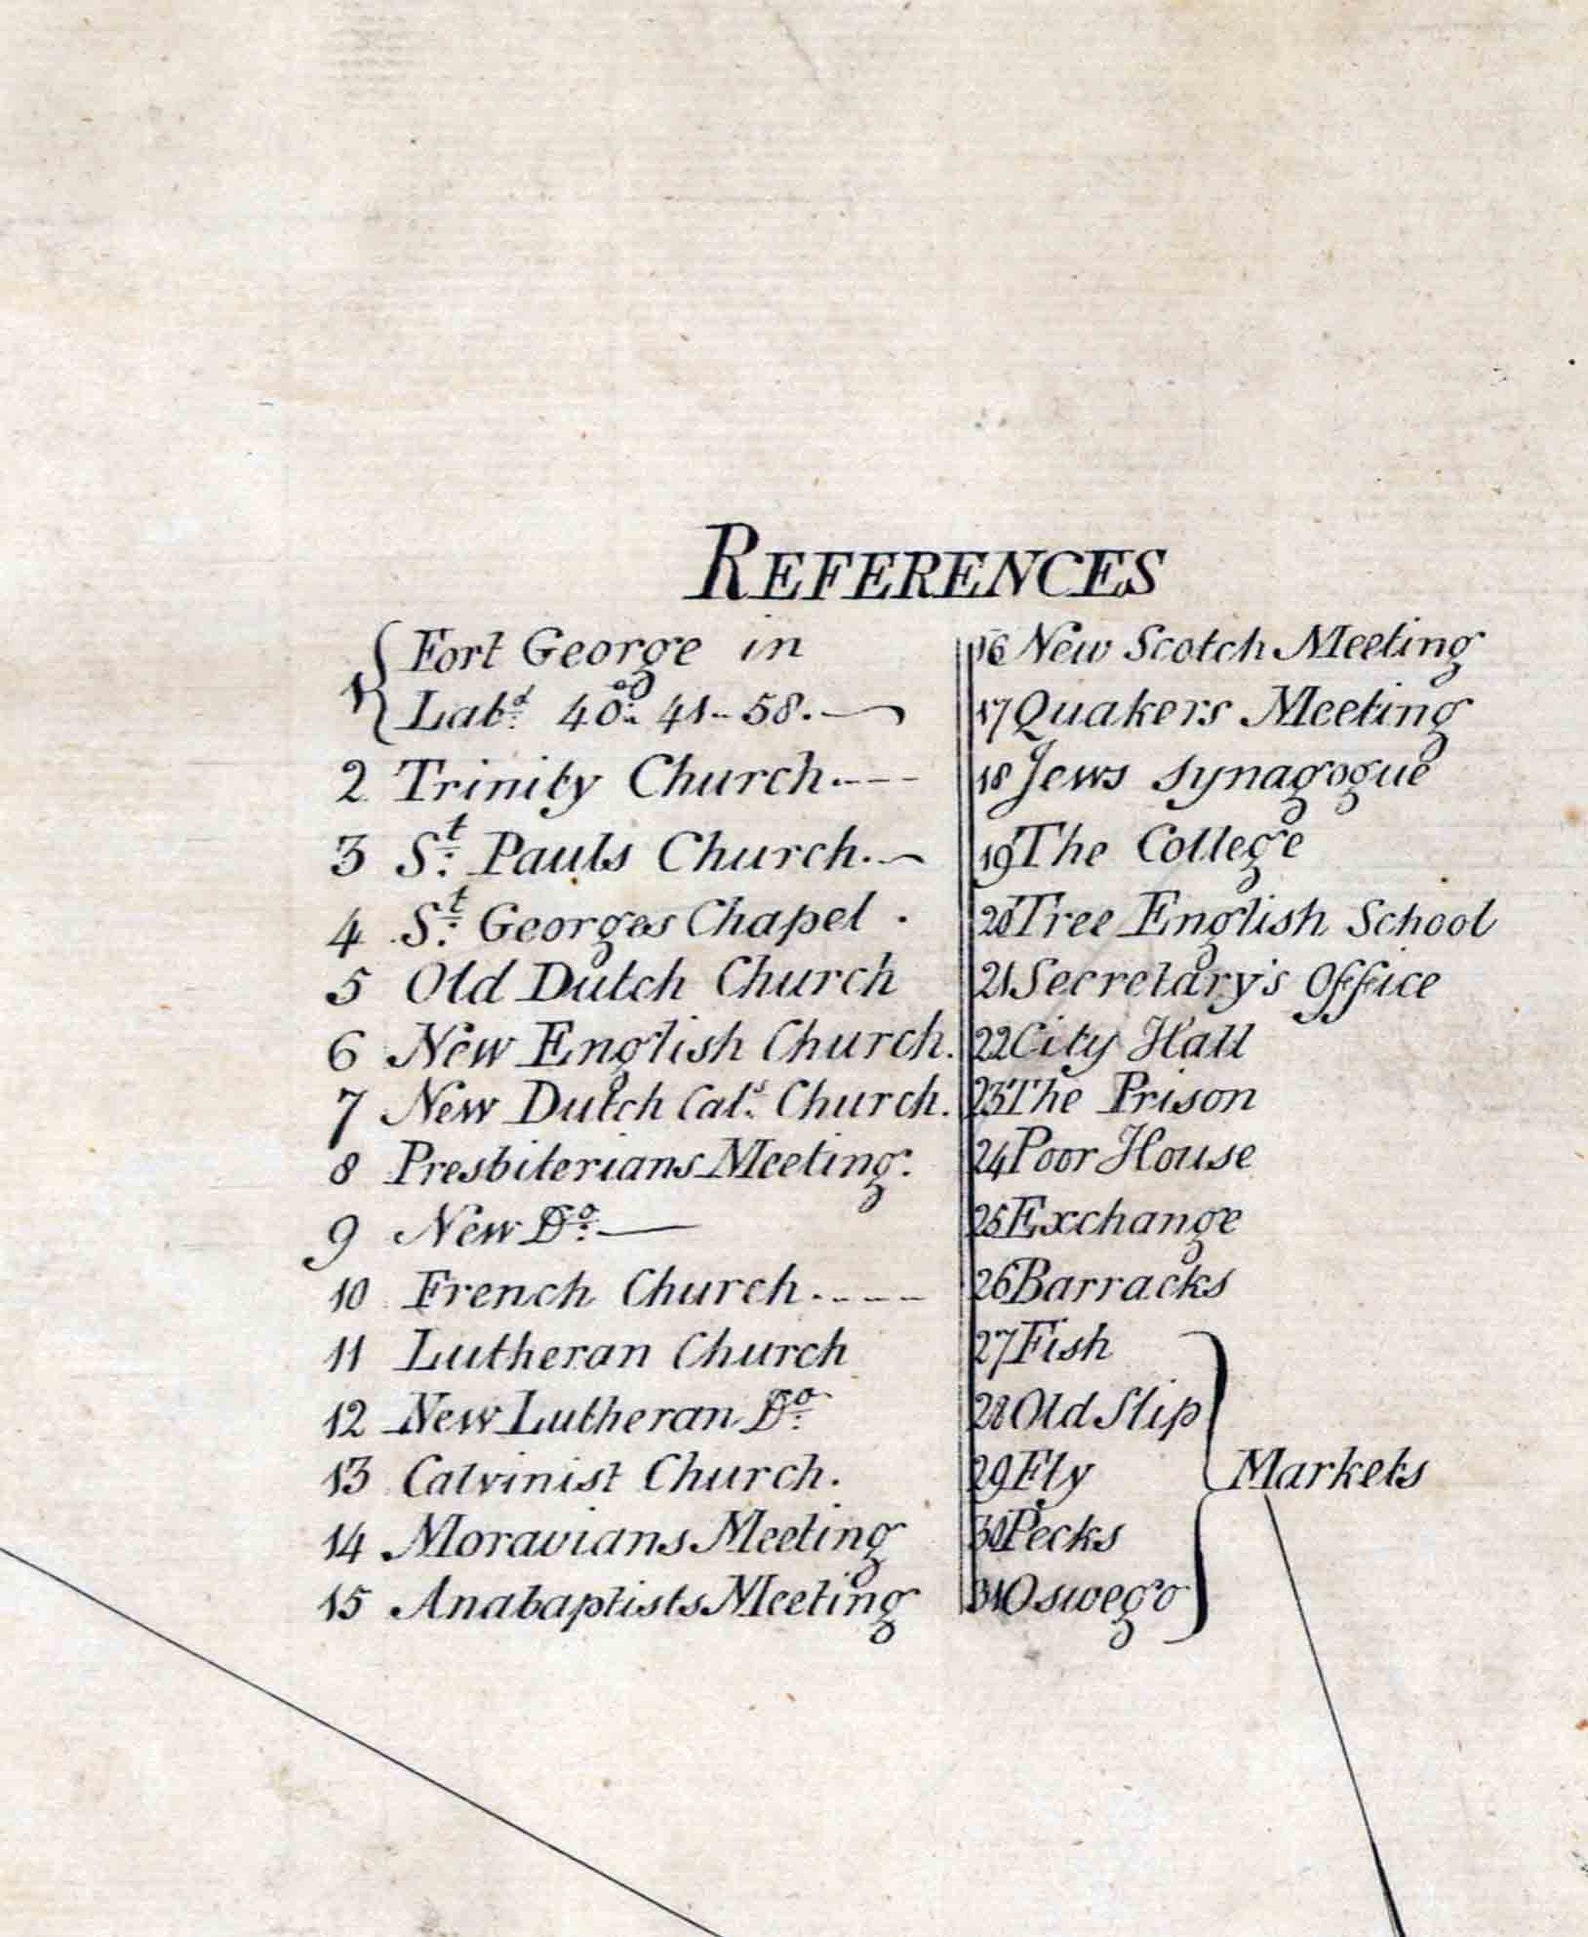 REFERENCES
1 { Fort George in
Latd. 40° 41-58.
2 Trinity Church.---
3 St. Pauls Church.
4 St. Georges Chapel .
5 Old Dutch Church
6 New English Church.
7 New Dutch Cals. Church.
8 Presbiterians Meeting.
9 New Do.
10 French Church.----
11 Lutheran Church
12 New Lutheran Do.
13 Calvinist Church.
14 Moravians Meeting
15 Anabaptists Meeting
16 New Scotch Meeting
17 Quakers Meeting
18 Jews Synagogue
19 The College
20 Free English School
21 Secretary's Office
22 City Hall
23 The Prison
24 Poor House
25 Exchange
26 Barracks
27 Fish
28 Old Slip
29 Fly
30 Pecks
31 Oswego
Markets